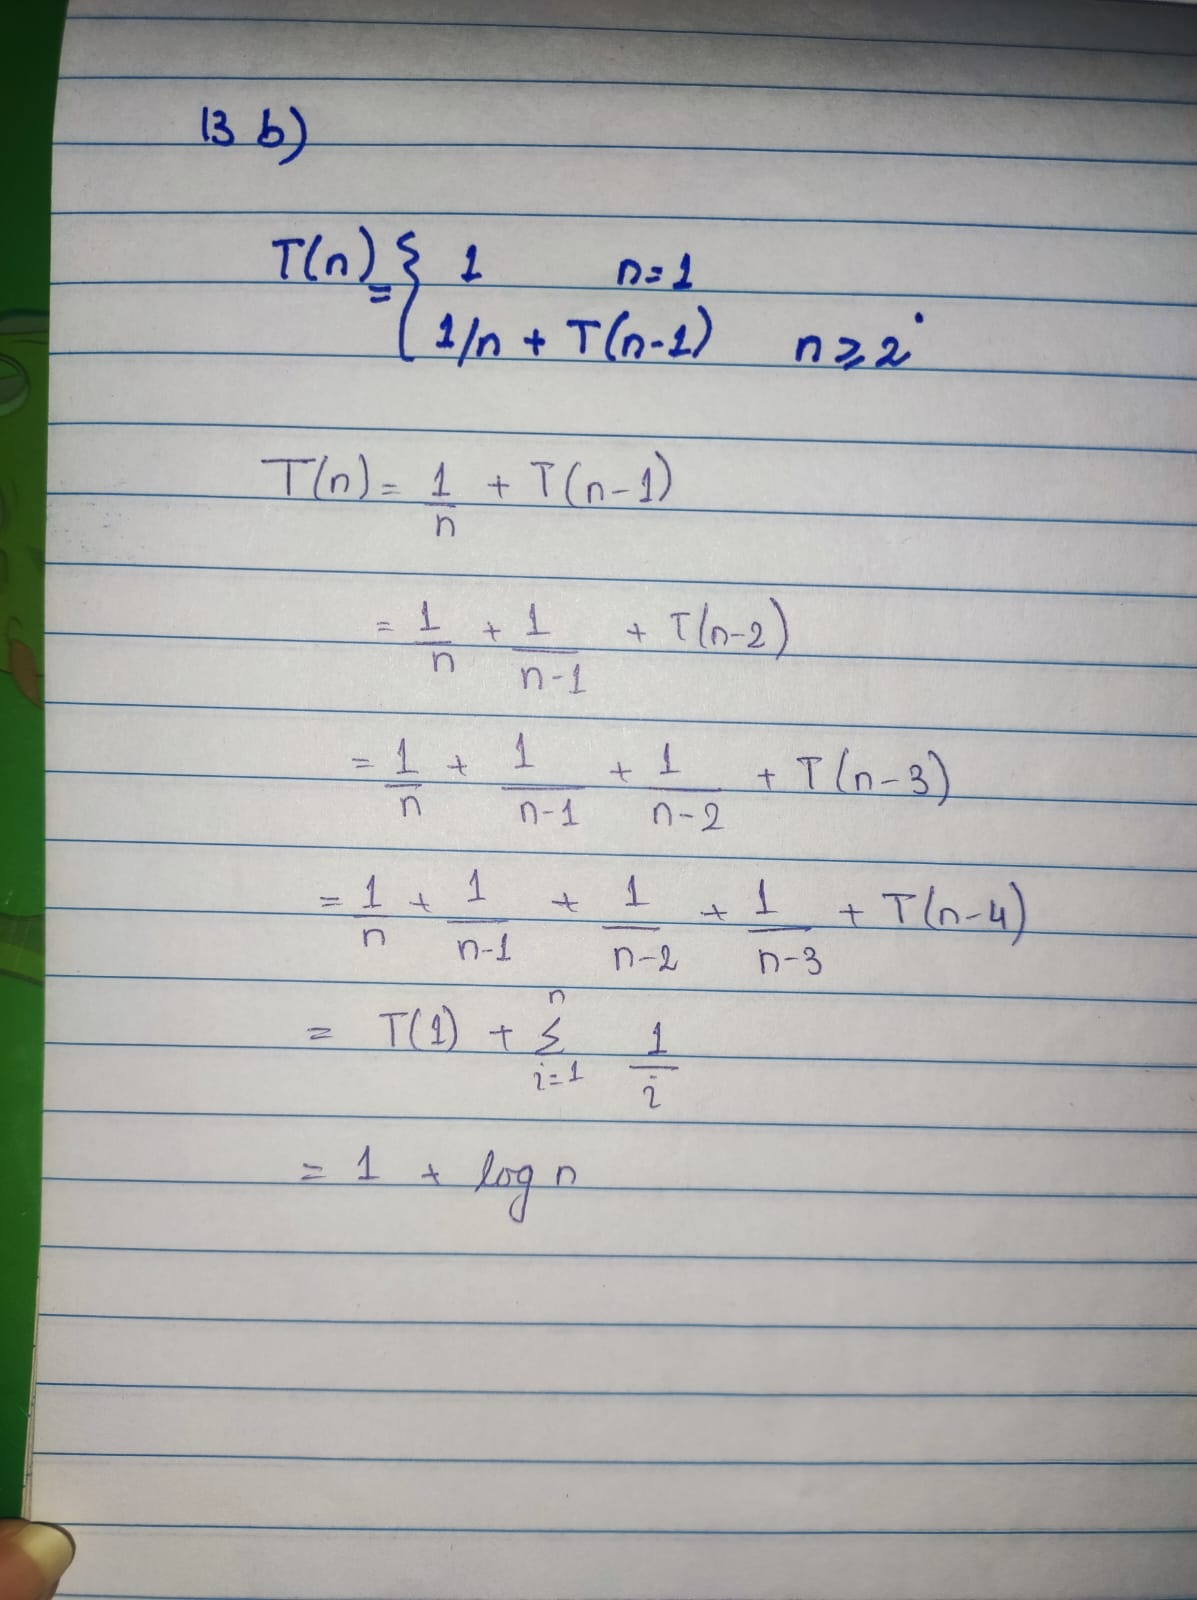 13 b)
T(n) = { 1 n=1
1/n + T(n-1) n≥2
T(n) = 1/n + T(n-1)
= 1/n + 1/n-1 + T(n-2)
= 1/n + 1/n-1 + 1/n-2 + T(n-3)
= 1/n + 1/n-1 + 1/n-2 + 1/n-3 + T(n-4)
= T(1) + Σ_{i=1}^{n} 1/i
= 1 + log n